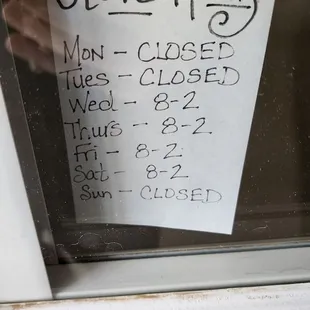 Mon - CLOSED
Tues - CLOSED
Wed - 8-2
Thurs - 8-2
Fri - 8-2
Sat - 8-2
Sun - CLOSED